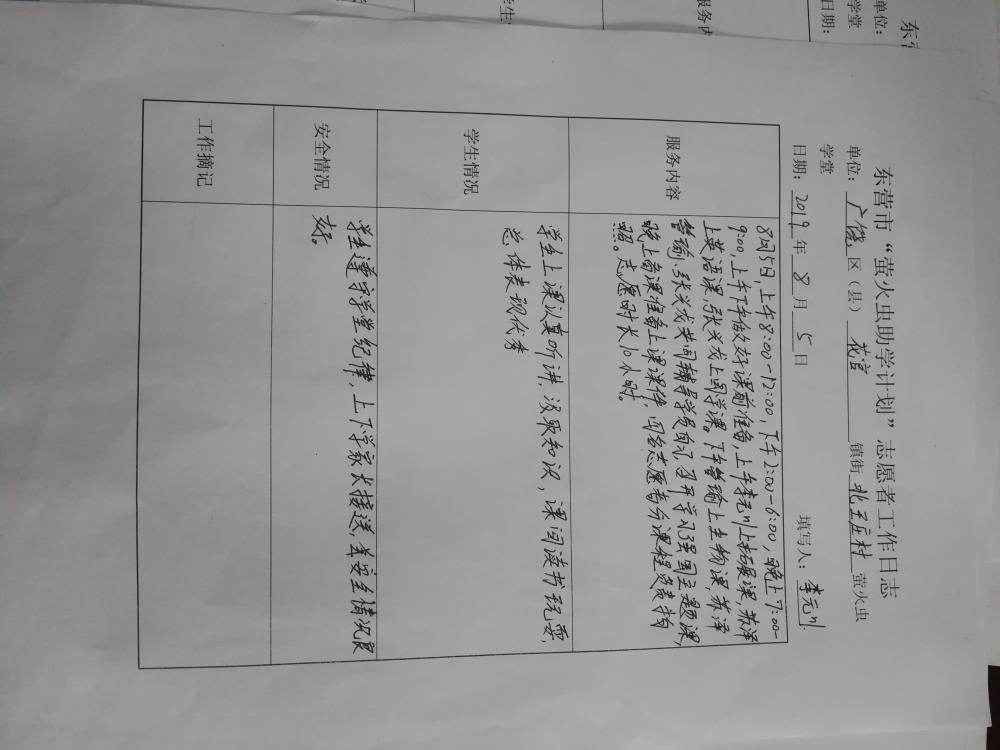 东营市“萤火虫助学计划”志愿者工作日志
单位：广饶区（县）花官镇街北王庄村萤火虫
学堂
日期：2019年8月5日 填写人：李元川
服务内容
8月5日，上午8:00-12:00，下午2:00-6:00，晚上7:00-
9:00，上午下午做好课前准备，上午李元川上拓展课，苏泽
上英语课，张兴龙上国学课。下午管瑜上生物课，苏泽
管瑜、张兴龙共同辅导学员自习召开学习强国主题课，
晚上备课准备上课课件，四名志愿者分课程负责拍
照。志愿时长10小时。
学生情况
学生上课认真听讲，汲取知识，课间读书玩耍，
总体表现优秀
安全情况
学生遵守学堂纪律，上下学家长接送，其安全情况良
好。
工作摘记
东营
单位：
学堂
日期：
服务内
学生